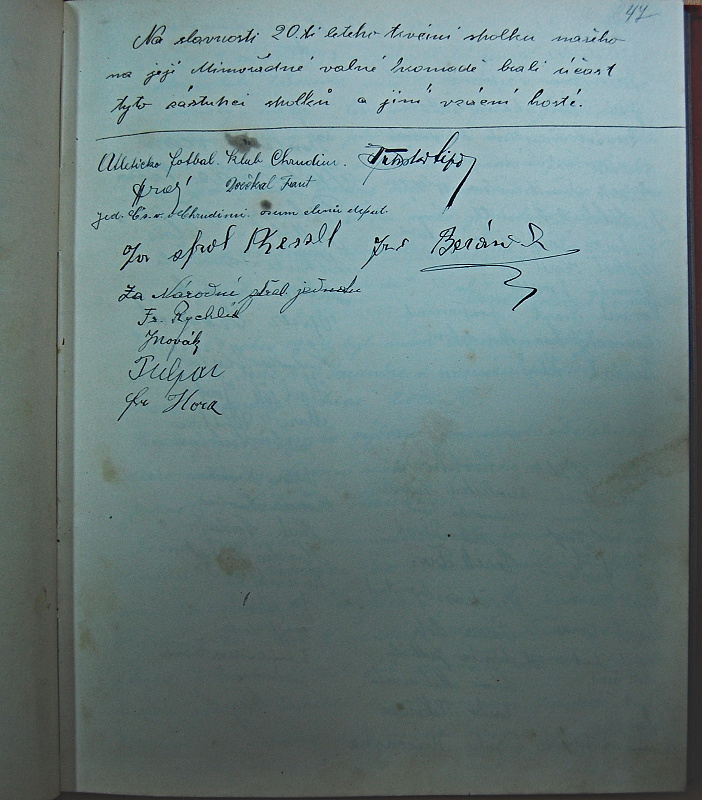 47
Na slavnosti 20.ti letého trvání spolku našeho
na její Mimořádné valné hromadě brali účast
tyto zástupci spolků a jiní vzácní hosté.
Atleticko fotbal. klub Chrudim.
Dočkal Frant
jed. Čs. v Chrudimi. osum členů deput.
Beránek
Za Národní střel. jednotu
Fr. Rychlík
JNovák
Pulpan
Fr Hora